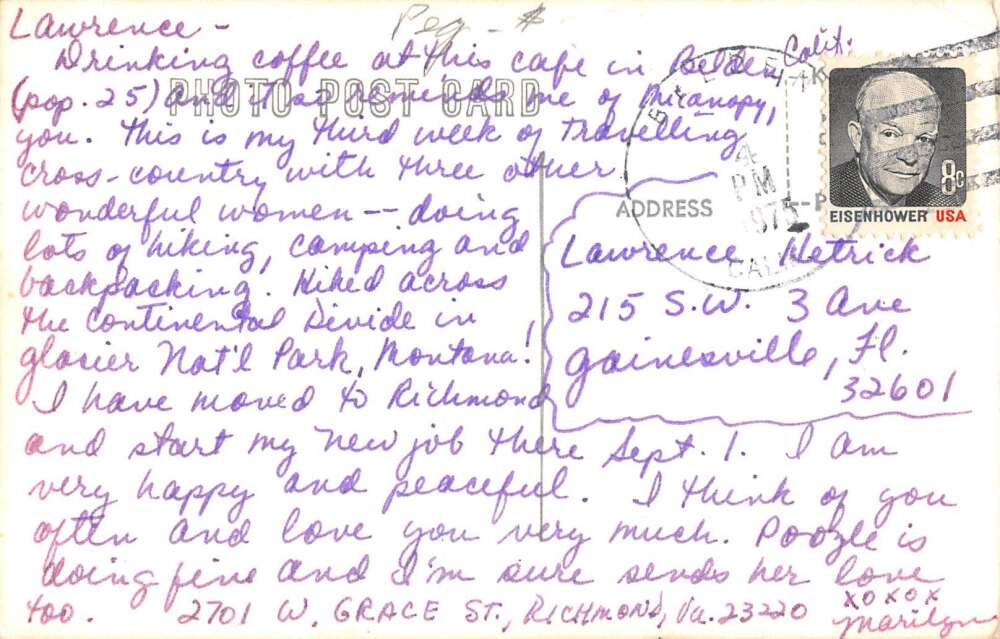 Lawrence -
Peg - $
Drinking coffee at this cafe in Belden, Calif.
PHOTO POST CARD
(pop. 25) and it so reminds me of Micanopy,
you. This is my third week of travelling
cross-country with three other
wonderful women -- doing
lots of hiking, camping and
backpacking. Hiked across
the Continental Divide in
glacier Nat'l Park, Montana!
I have moved to Richmond
and start my new job there Sept. 1. I am
very happy and peaceful. I think of you
often and love you very much. Poozle is
doing fine and I'm sure sends her love
too. 2701 W. GRACE ST., RICHMOND, Va. 23220
xoxox
Marilyn
PM
1975
CALIF
8c
EISENHOWER USA
ADDRESS
Lawrence Hetrick
215 S.W. 3 Ave
Gainesville, Fl.
32601